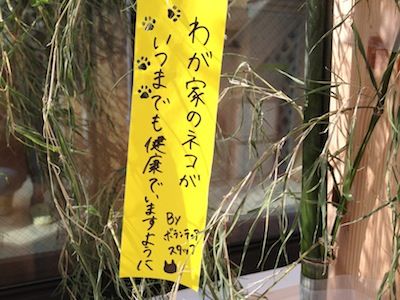 わが家のネコが
いつまでも健康でいますように
By
ボランティア
スタッフ